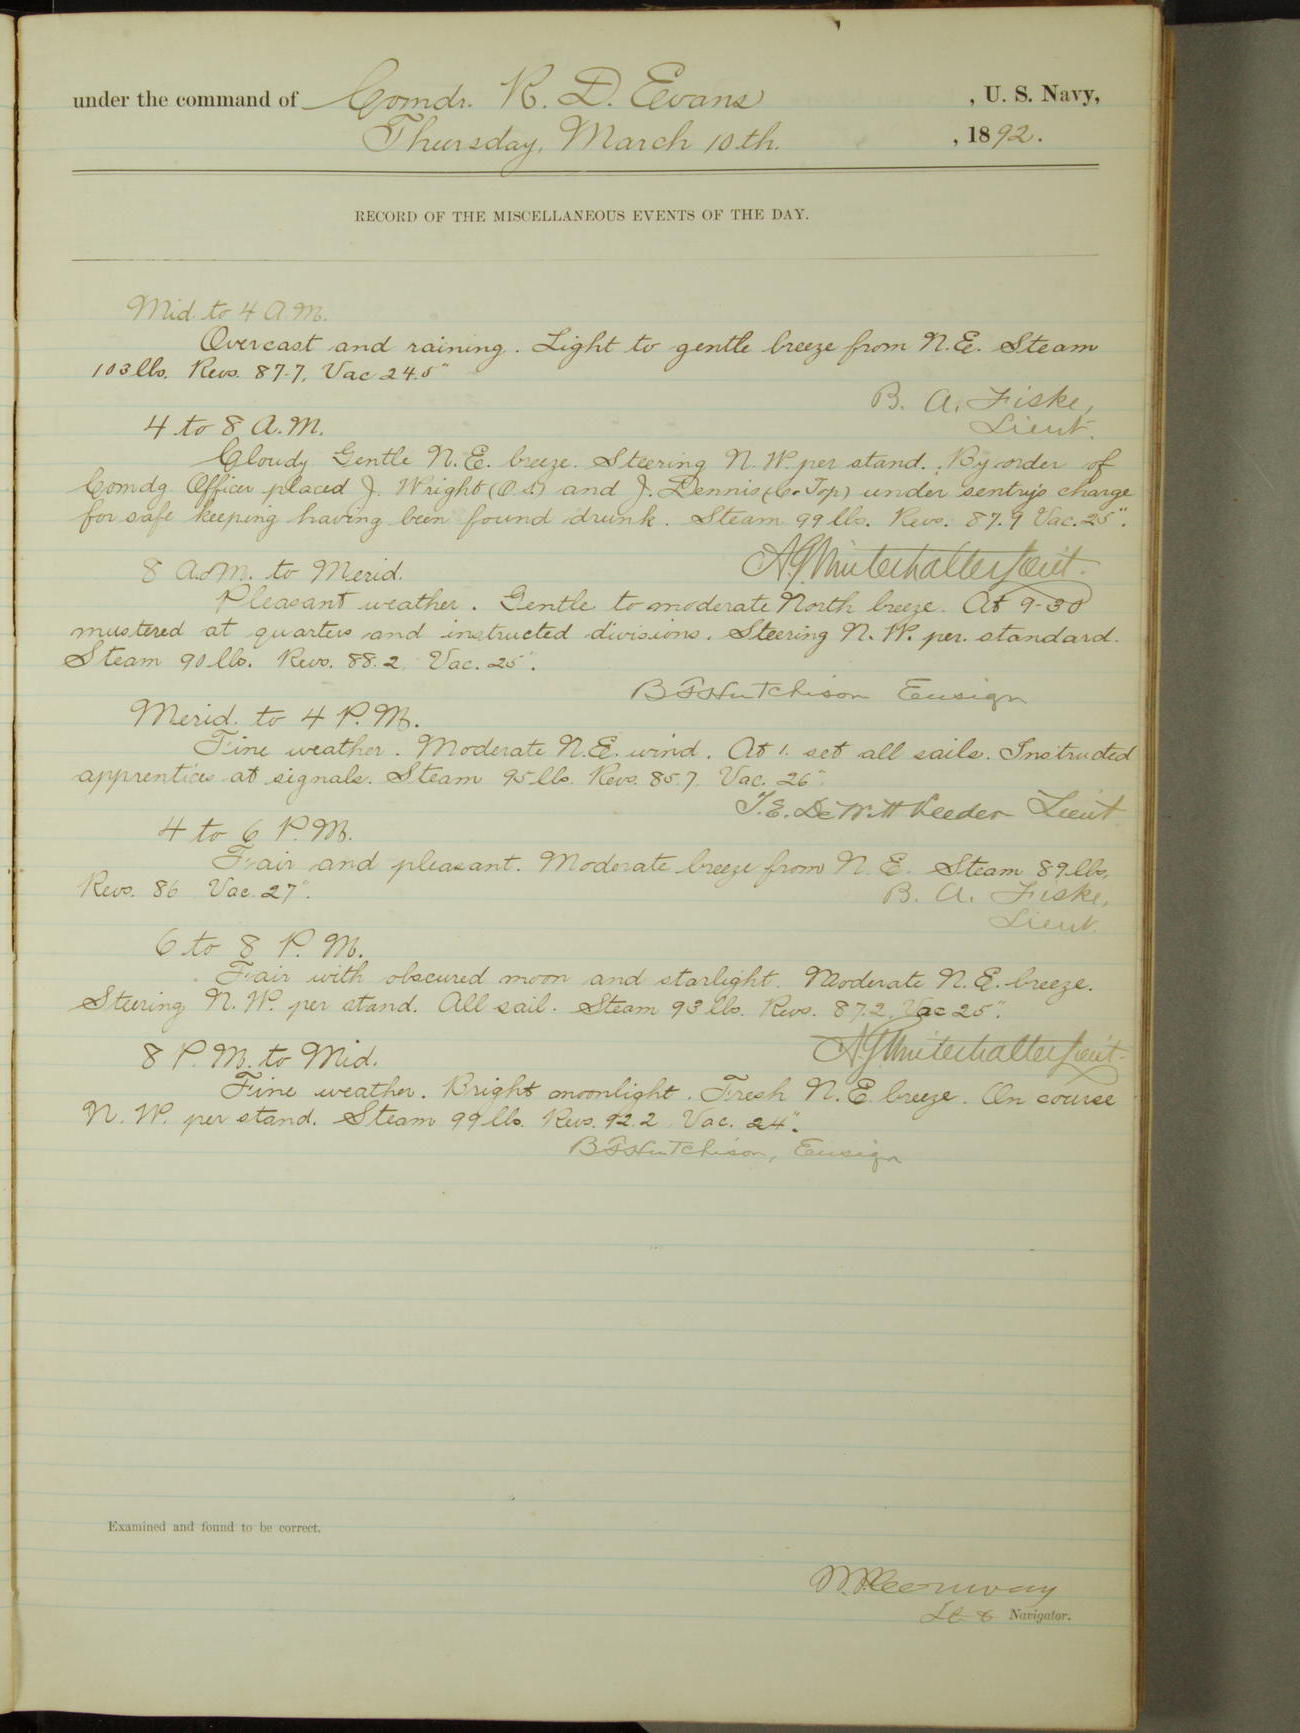 under the command of Comdr. R. D. Evans , U. S. Navy,
Thursday, March 10th. , 1892.
RECORD OF THE MISCELLANEOUS EVENTS OF THE DAY.
Mid. to 4 A.M.
Overcast and raining. Light to gentle breeze from N.E. Steam
103 lbs. Revs. 87.7, Vac 24.5"
B. A. Fiske,
Lieut.
4 to 8 A.M.
Cloudy. Gentle N.E. breeze. Steering N.W. per stand. By order of
Comdg Officer placed J. Wright (O.S.) and J. Dennis ( Top) under sentry's charge
for safe keeping having been found drunk. Steam 99 lbs. Revs. 87.9 Vac. 25".
A.G. Winterhalter Lieut.
8 A.M. to Merid.
Pleasant weather. Gentle to moderate North breeze. At 9-30
mustered at quarters and instructed divisions. Steering N.W. per. standard.
Steam 90 lbs. Revs. 88.2 Vac. 25".
B F Hutchison Ensign
Merid. to 4 P.M.
Fine weather. Moderate N.E. wind. At 1. set all sails. Instructed
apprentices at signals. Steam 95 lbs. Revs. 85.7 Vac. 26"
T.E. DeWitt Veeder Lieut
4 to 6 P.M.
Fair and pleasant. Moderate breeze from N.E. Steam 89 lbs,
Revs. 86 Vac. 27".
B. A. Fiske,
Lieut.
6 to 8 P.M.
Fair with obscured moon and starlight. Moderate N.E. breeze.
Steering N.W. per stand. All sail. Steam 93 lbs. Revs. 87.2. Vac 25".
A.G. Winterhalter Lieut.
8 P.M. to Mid.
Fine weather. Bright moonlight. Fresh N.E. breeze. On course
N.W. per stand. Steam 99 lbs. Revs. 92.2 Vac. 24".
B F Hutchison, Ensign
Examined and found to be correct.
Lt & Navigator.